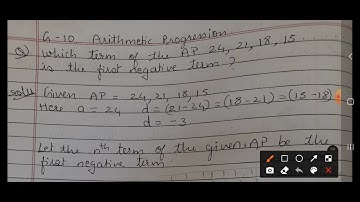 G-10 Arithmetic Progression
Q) Which term of the AP 24, 21, 18, 15 . . .
is the first negative term ?
Soln Given AP = 24, 21, 18, 15
Here a = 24 d = (21-24) = (18-21) = (15-18)
d = -3
Let the nth term of the given AP be the
first negative term.